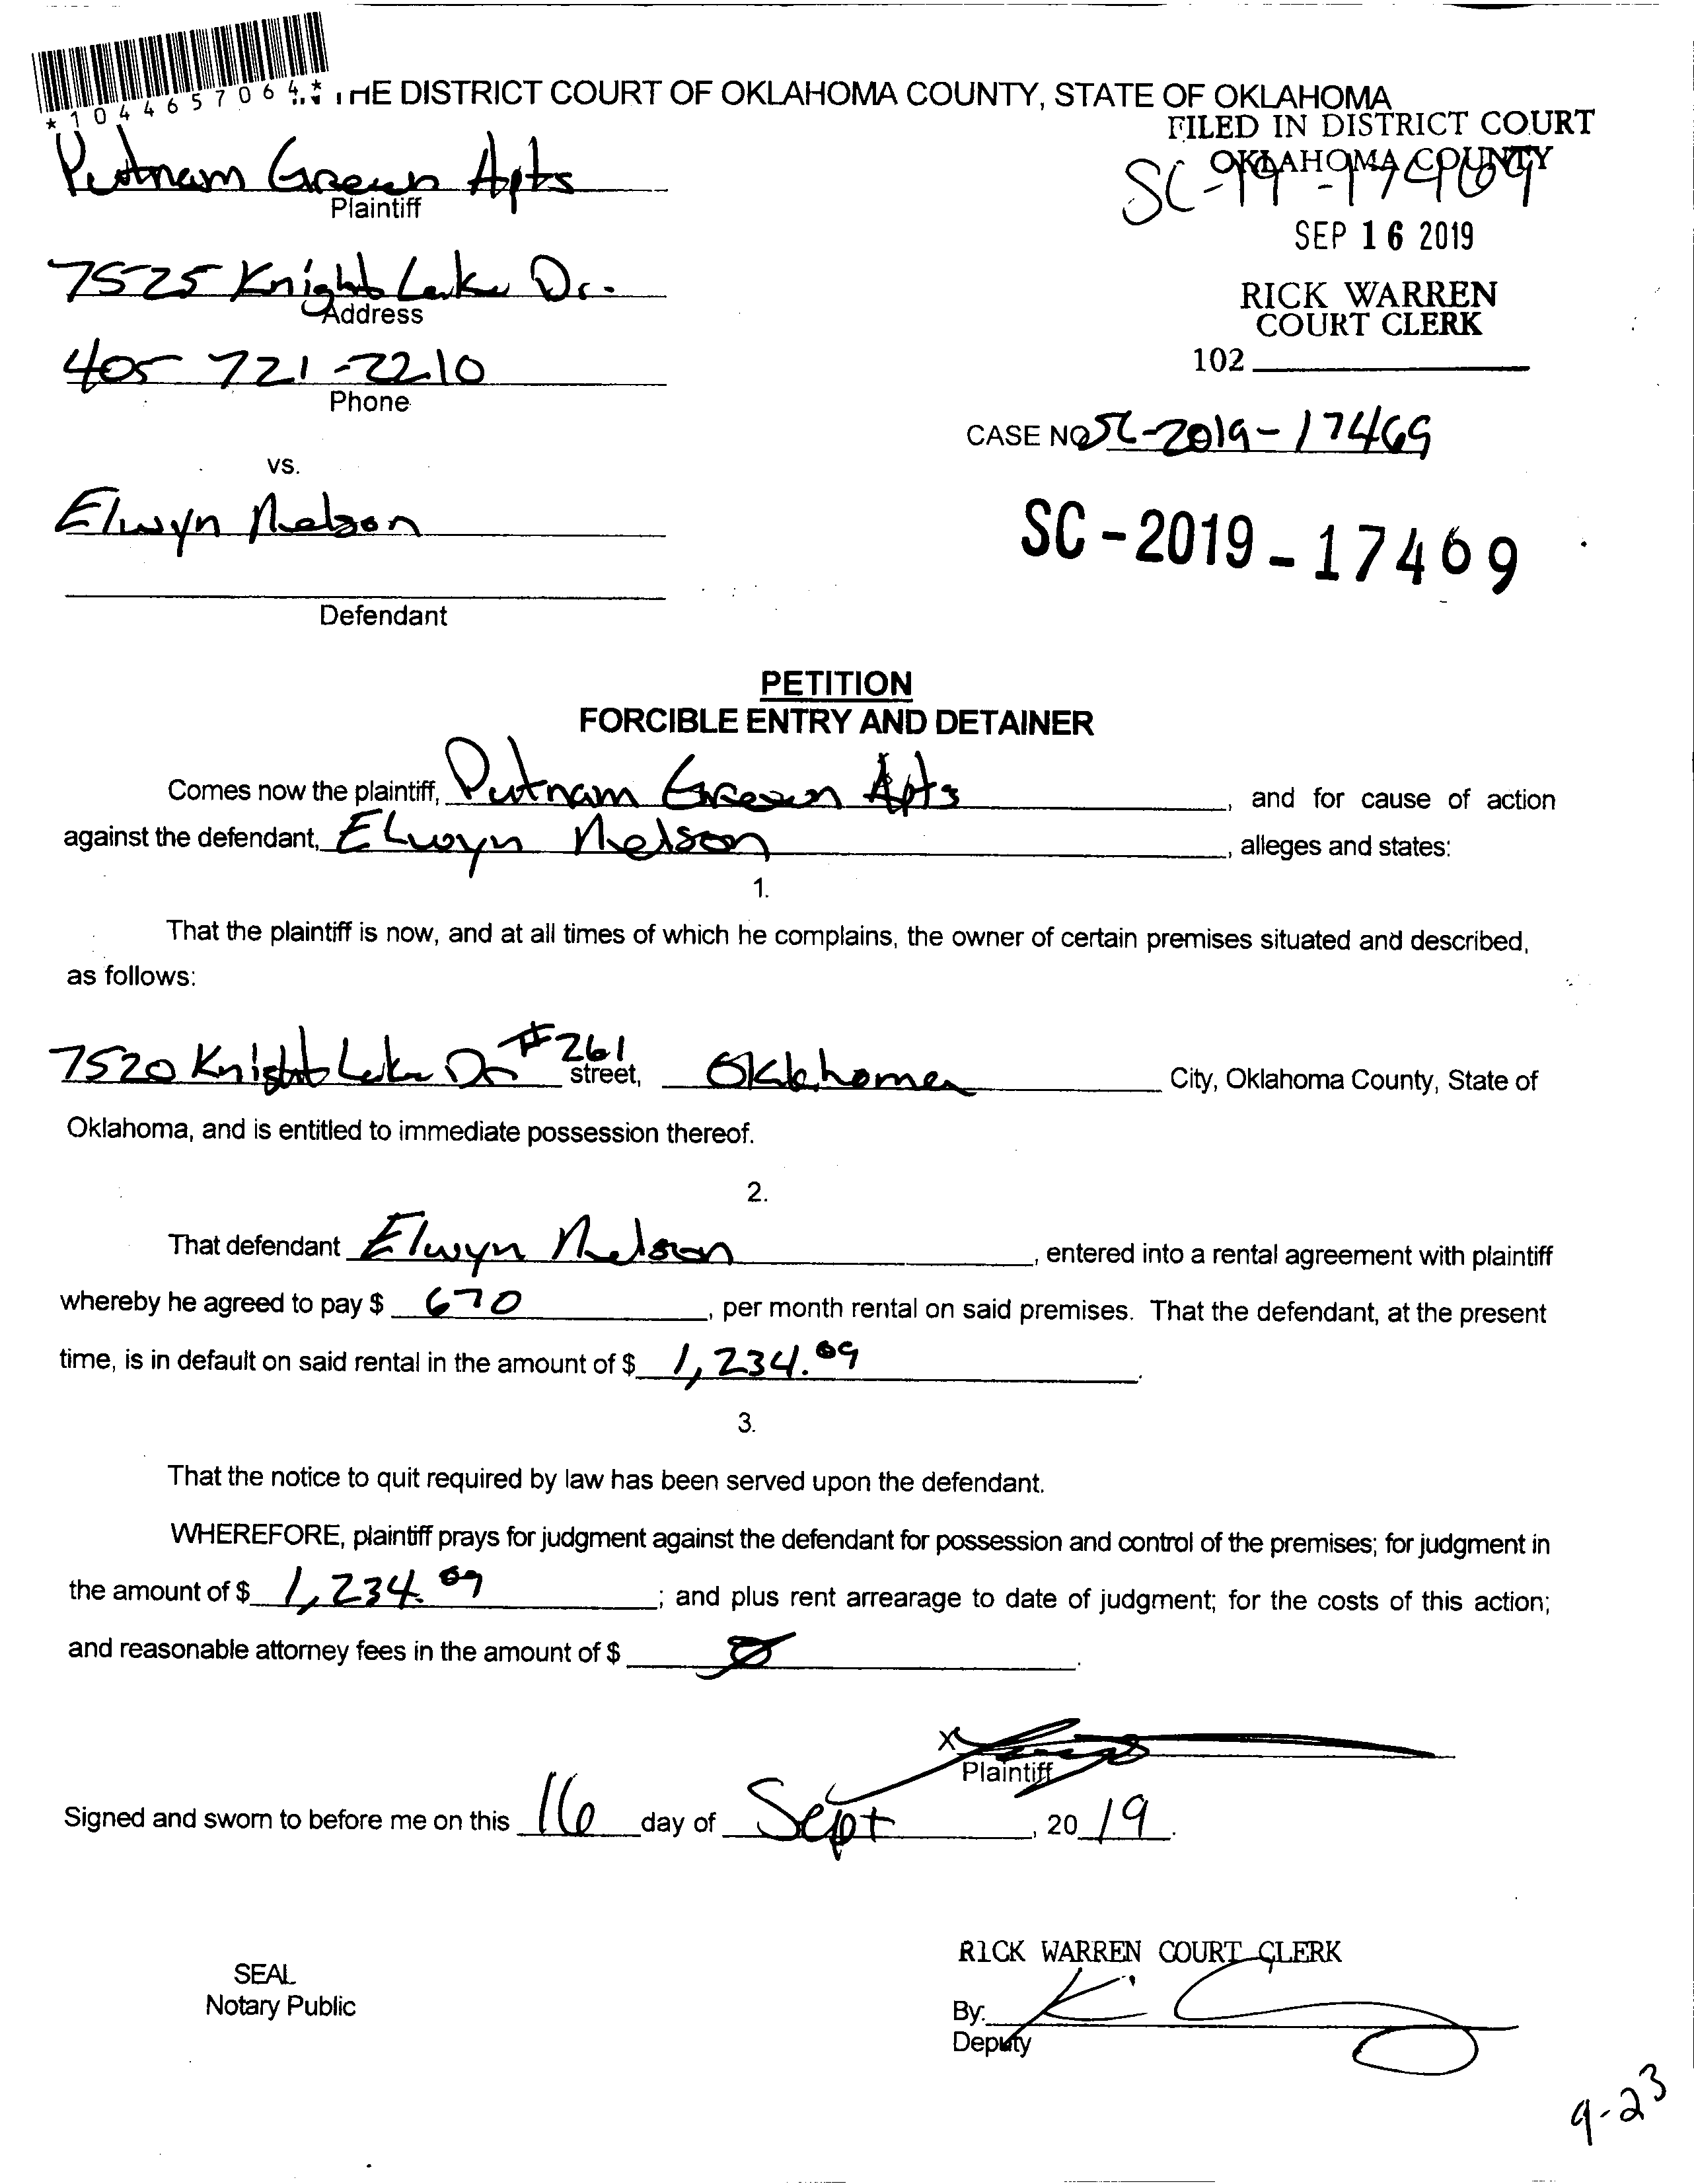 *1044657064*
THE DISTRICT COURT OF OKLAHOMA COUNTY, STATE OF OKLAHOMA
FILED IN DISTRICT COURT
OKLAHOMA COUNTY
SC-19-17469
Putnam Green Apts
Plaintiff
SEP 16 2019
7525 Knight Lake Dr.
Address
RICK WARREN
COURT CLERK
405 721-2210
Phone
102
CASE NO SC-2019-17469
vs.
Elwyn Nelson
SC-2019-17469
Defendant
PETITION
FORCIBLE ENTRY AND DETAINER
Comes now the plaintiff, Putnam Green Apts, and for cause of action
against the defendant, Elwyn Nelson, alleges and states:
1.
That the plaintiff is now, and at all times of which he complains, the owner of certain premises situated and described,
as follows:
7520 Knight Lake Dr #261 street, Oklahoma City, Oklahoma County, State of
Oklahoma, and is entitled to immediate possession thereof.
2.
That defendant Elwyn Nelson, entered into a rental agreement with plaintiff
whereby he agreed to pay $ 670, per month rental on said premises. That the defendant, at the present
time, is in default on said rental in the amount of $ 1,234.09.
3.
That the notice to quit required by law has been served upon the defendant.
WHEREFORE, plaintiff prays for judgment against the defendant for possession and control of the premises; for judgment in
the amount of $ 1,234.09; and plus rent arrearage to date of judgment; for the costs of this action;
and reasonable attorney fees in the amount of $ 0.
X
Plaintiff
Signed and sworn to before me on this 16 day of Sept, 2019.
RICK WARREN COURT CLERK
SEAL
Notary Public
By:
Deputy
9-23